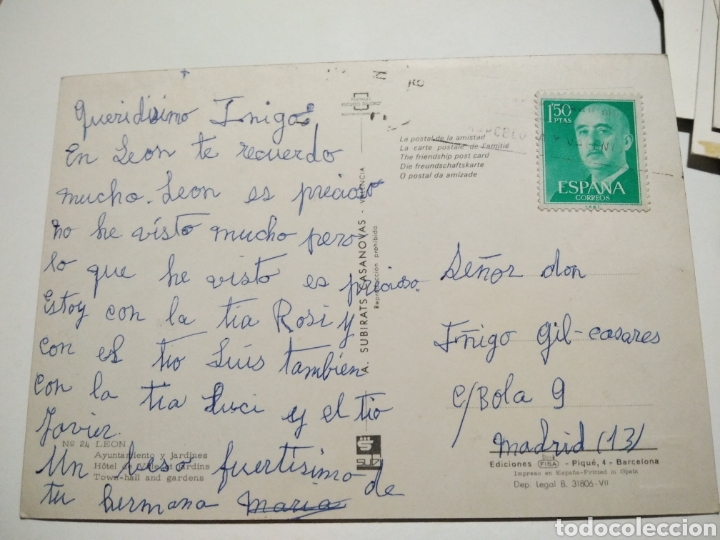 Queridisimo Iñigo
En Leon te recuerdo
mucho. Leon es precioso
no he visto mucho pero
lo que he visto es precioso.
Estoy con la tia Rosi y
con el tio Luis tambien
con la tia Luci y el tio
Javier.
Un beso fuertisimo de
tu hermana Maria
Nº 24 LEON
Ayuntamiento y jardines
Hôtel de Ville et jardins
Town-hall and gardens
A. SUBIRATS CASANOVAS - VALENCIA
Reproducción prohibida
La postal de la amistad
La carte postale de l'amitié
The friendship post card
Die freundschaftskarte
O postal da amizade
1'50
PTAS
ESPAÑA
CORREOS
Señor don
Iñigo Gil-casares
C/Bola 9
Madrid (13)
Ediciones FISA - Piqué, 4 - Barcelona
Impreso en España-Printed in Spain
Dep. Legal B. 31806-VII
todocoleccion